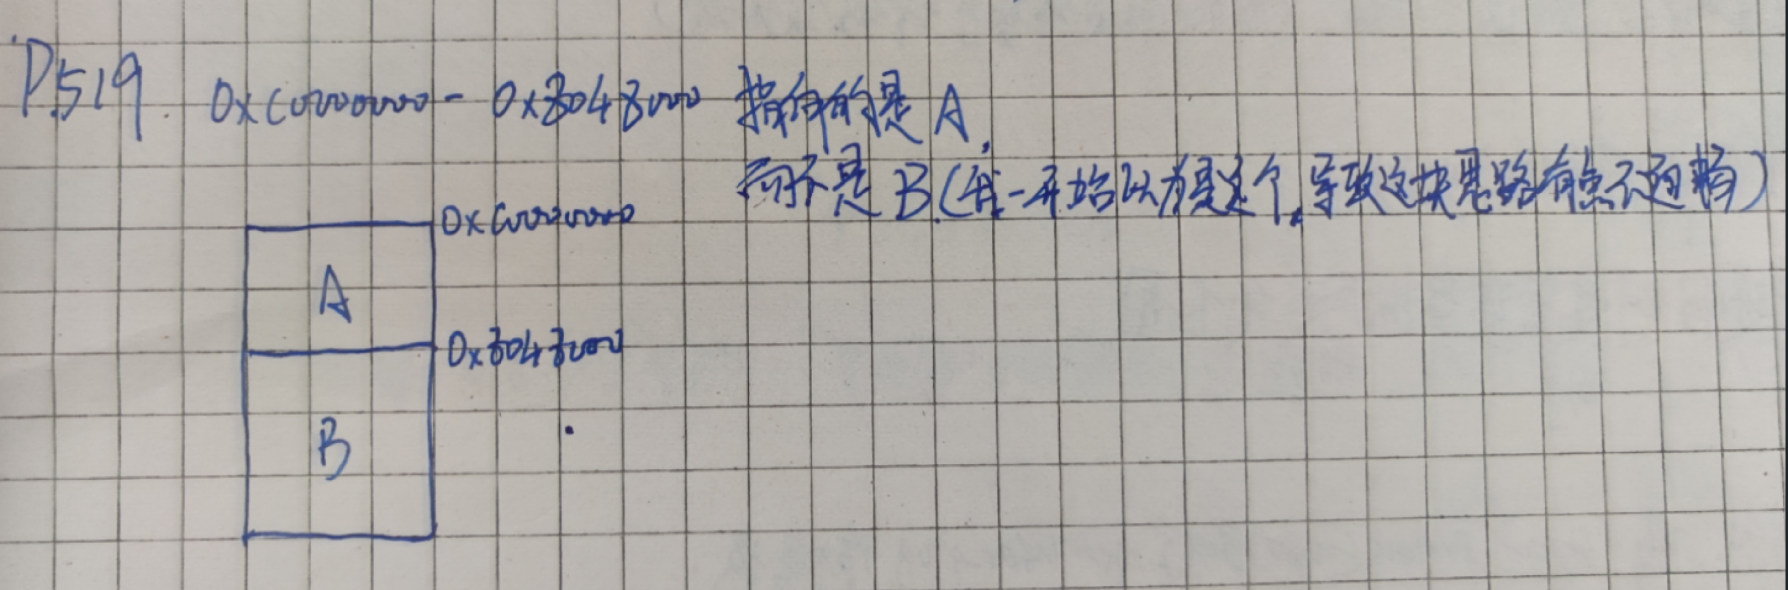 P519. 0xc0000000 - 0x8048000 指向的是 A,
而不是 B.(我一开始以为是这个,导致这块思路有点不通畅)
0xc0000000
A
0x8048000
B